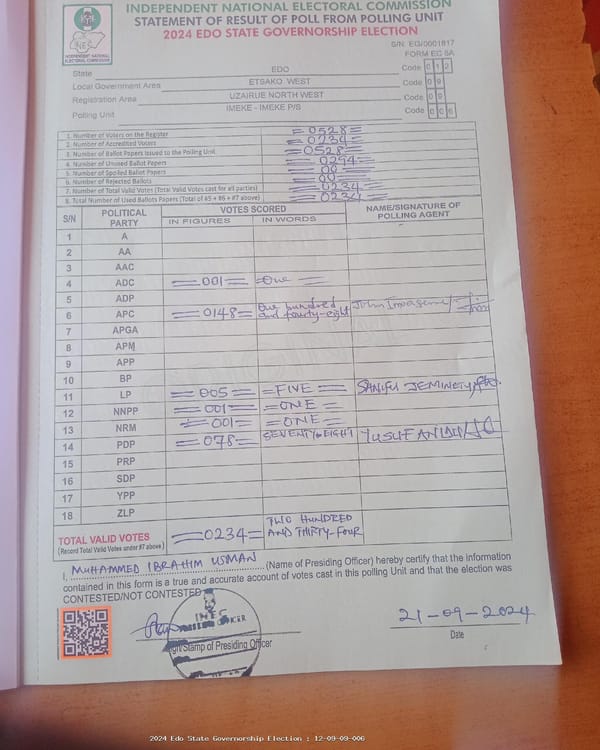 INDEPENDENT NATIONAL ELECTORAL COMMISSION
STATEMENT OF RESULT OF POLL FROM POLLING UNIT
2024 EDO STATE GOVERNORSHIP ELECTION
S/N EG/0001817
FORM EC 8A
INEC
INDEPENDENT NATIONAL
ELECTORAL COMMISSION
State EDO Code 012
Local Government Area ETSAKO WEST Code 09
Registration Area UZAIRUE NORTH WEST Code 09
Polling Unit IMEKE - IMEKE P/S Code 006
1. Number of Voters on the Register =0528=
2. Number of Accredited Voters =0234=
3. Number of Ballot Papers Issued to the Polling Unit =0528=
4. Number of Unused Ballot Papers =0294=
5. Number of Spoiled Ballot Papers =00=
6. Number of Rejected Ballots =00=
7. Number of Total Valid Votes (Total Valid Votes cast for all parties) =0234=
8. Total Number of Used Ballots Papers (Total of #5 + #6 + #7 above) =0234=
S/N POLITICAL PARTY VOTES SCORED NAME/SIGNATURE OF POLLING AGENT
IN FIGURES IN WORDS
1 A
2 AA
3 AAC
4 ADC =001= =One=
5 ADP
6 APC =0148= One hundred and fourty-eight John
7 APGA
8 APM
9 APP
10 BP
11 LP =005= =FIVE=
12 NNPP =001= =ONE=
13 NRM =001= =ONE=
14 PDP =078= SEVENTY-EIGHT YUSUF
15 PRP
16 SDP
17 YPP
18 ZLP
TOTAL VALID VOTES =0234= TWO HUNDRED AND THIRTY-FOUR
(Record Total Valid Votes under #7 above)
I, MUHAMMED IBRAHIM USMAN (Name of Presiding Officer) hereby certify that the information
contained in this form is a true and accurate account of votes cast in this polling Unit and that the election was
CONTESTED/NOT CONTESTED
INEC
21-09-2024
Stamp of Presiding Officer
Date
2024 Edo State Governorship Election : 12-09-09-006